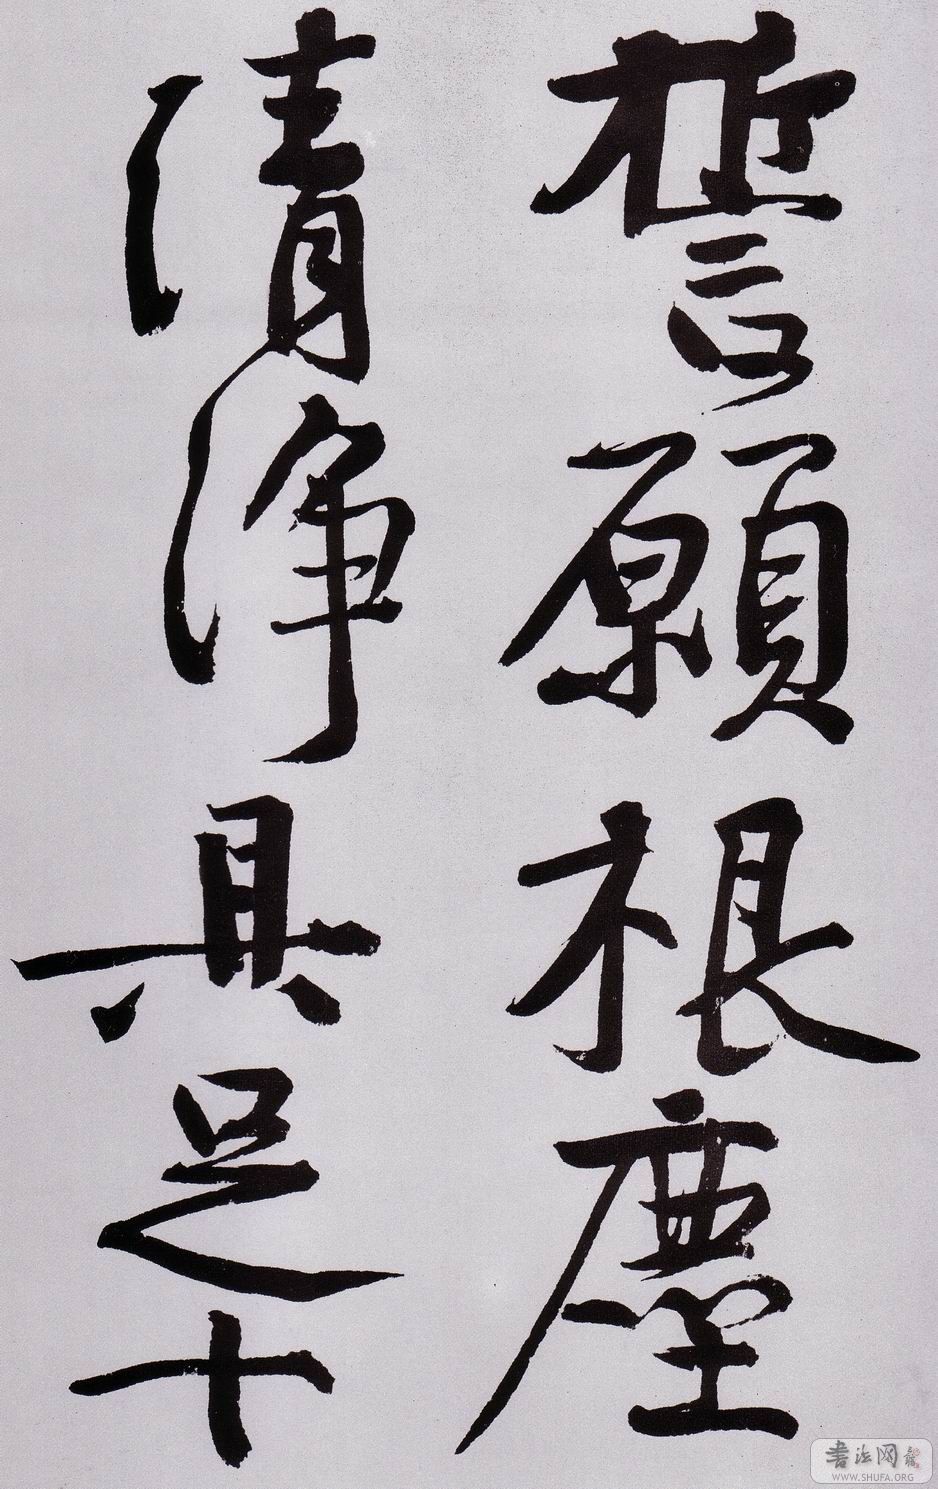 誓願根塵
清淨具足十
書法网
WWW.SHUFA.ORG